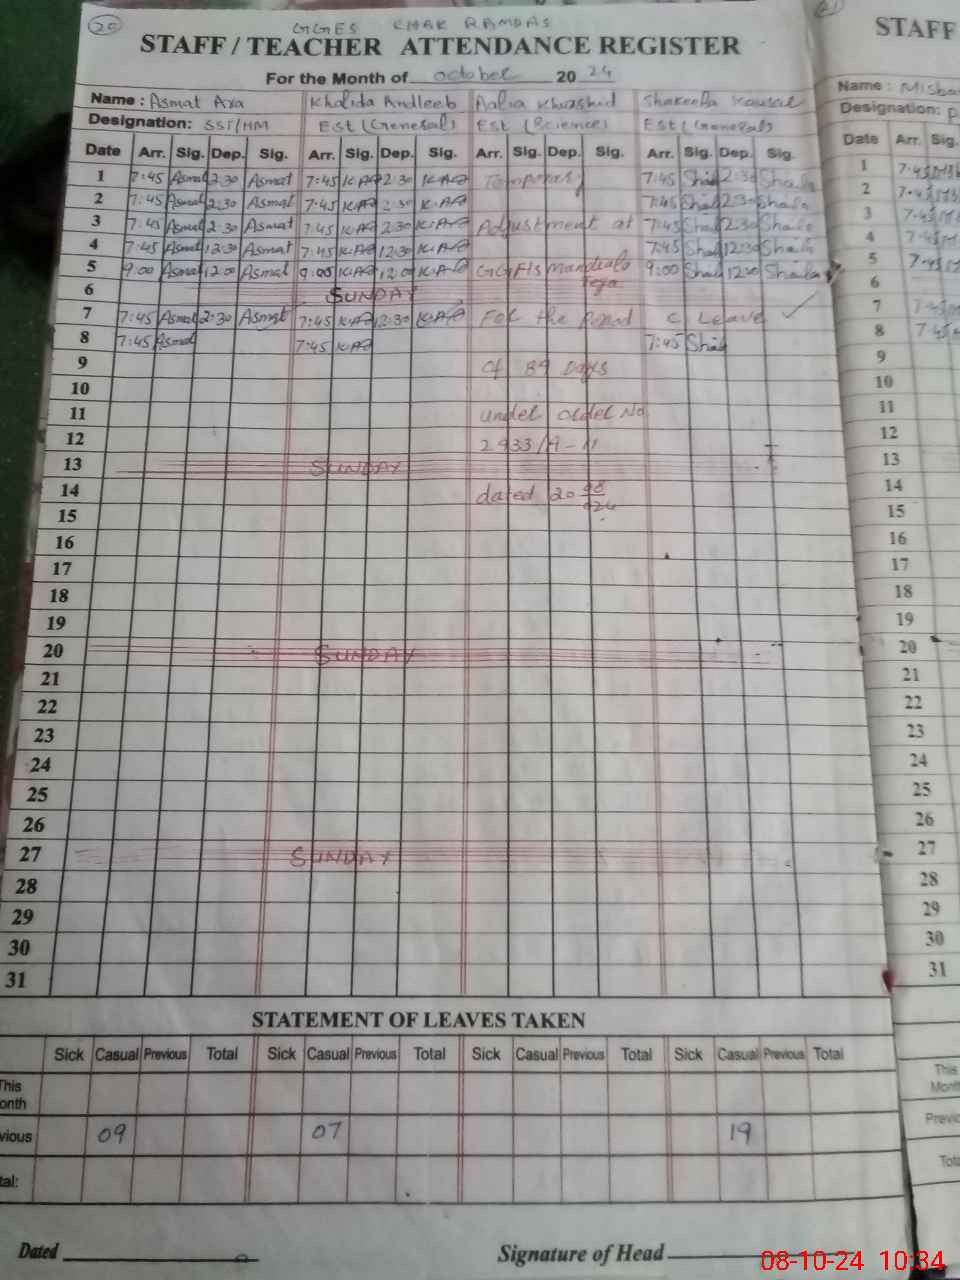 20 GGES CHAK RAMDAS
STAFF / TEACHER ATTENDANCE REGISTER
For the Month of October 20 24
Name : Asmat Ara Khalida Andleeb Aalia Khurshid Shakeela Kausal
Designation: SST/HM Est (General) Est (Science) Est (General)
Date Arr. Sig. Dep. Sig. Arr. Sig. Dep. Sig. Arr. Sig. Dep. Sig. Arr. Sig. Dep. Sig.
1 7:45 Asmat 2:30 Asmat 7:45 2:30 Temporary 7:45 2:30
2 7:45 Asmat 2:30 Asmat 7:45 2:30 7:45 2:30
3 7:45 Asmat 2:30 Asmat 7:45 2:30 Adjustment at 7:45 2:30
4 7:45 Asmat 12:30 Asmat 7:45 12:30 7:45 12:30
5 9:00 Asmat 12:00 Asmat 9:00 12:00 9:00 12:00
6 SUNDAY
7 7:45 Asmat 2:30 Asmat 7:45 2:30 For the Period C Leave ✓
8 7:45 Asmat 7:45 7:45
9 of 89 Days
10
11 under order No
12 2933/A-11
13 SUNDAY
14 dated 20 08
15 024
16
17
18
19
20 SUNDAY
21
22
23
24
25
26
27 SUNDAY
28
29
30
31
STATEMENT OF LEAVES TAKEN
Sick Casual Previous Total Sick Casual Previous Total Sick Casual Previous Total Sick Casual Previous Total
This
onth
vious 09 07 19
tal:
Dated Signature of Head
STAFF
Name :
Designation:
Date Arr. Sig.
1 7:45
2 7:45
3 7:45
4 7:45
5 7:45
6
7 7:45
8 7:45
9
10
11
12
13
14
15
16
17
18
19
20
21
22
23
24
25
26
27
28
29
30
31
This
Mont
Previo
Tota
08-10-24 10:34